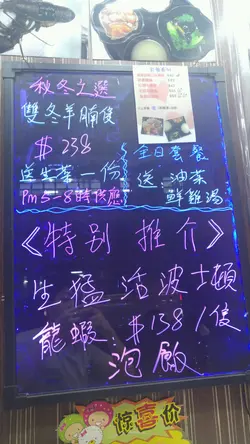 秋冬之選
雙冬羊腩煲
$238
送生菜一份
Pm5-8時供應
全日套餐
送:油菜
鮮雞湯
《特别推介》
生猛活波士頓
龍蝦:$138/隻
泡飯
惊喜价